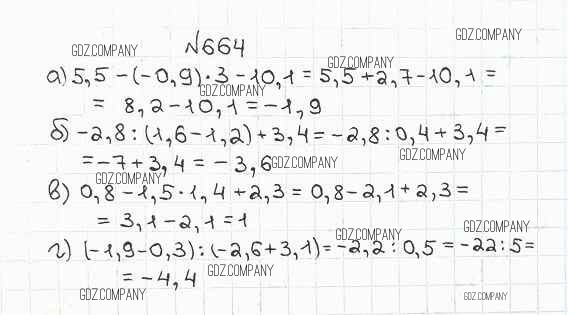 №664
GDZ.COMPANY
GDZ.COMPANY
GDZ.COMPANY
а) 5,5 - (-0,9) · 3 - 10,1 = 5,5 + 2,7 - 10,1 =
GDZ.COMPANY
= 8,2 - 10,1 = -1,9
б) -2,8 : (1,6 - 1,2) + 3,4 = -2,8 : 0,4 + 3,4 =
GDZ.COMPANY
= -7 + 3,4 = -3,6
GDZ.COMPANY
GDZ.COMPANY
в) 0,8 - 1,5 · 1,4 + 2,3 = 0,8 - 2,1 + 2,3 =
= 3,1 - 2,1 = 1
GDZ.COMPANY
GDZ.COMPANY
г) (-1,9 - 0,3) : (-2,6 + 3,1) = -2,2 : 0,5 = -22 : 5 =
GDZ.COMPANY
= -4,4
GDZ.COMPANY
GDZ.COMPANY